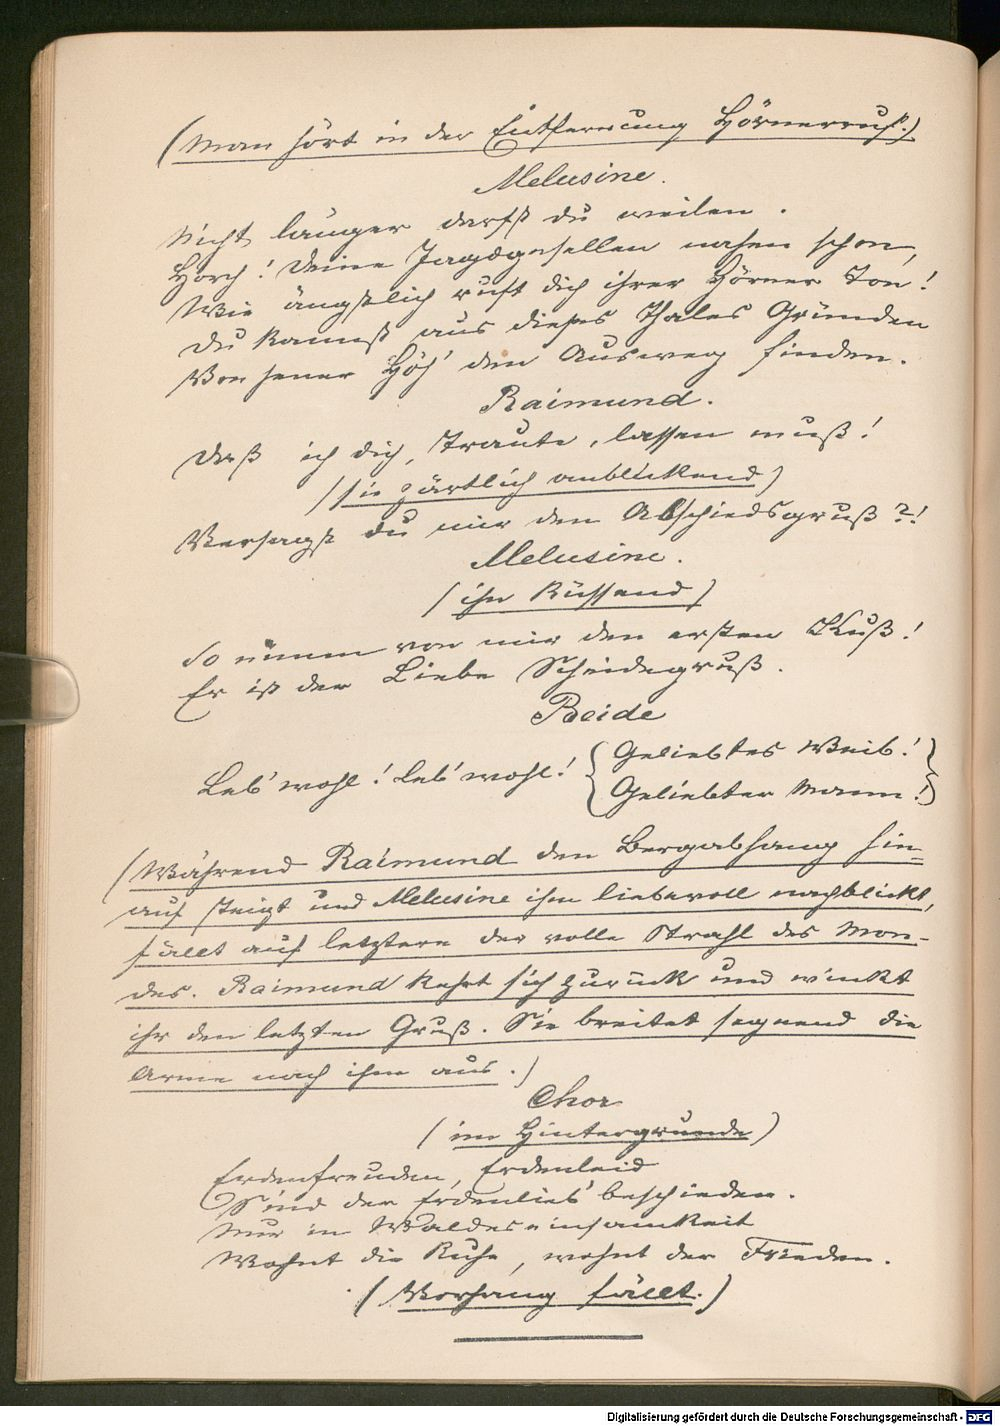 (Man hört in der Entfernung Hörnerruf.)
Melusine.
Nicht länger darfst du weilen.
Horch! Deine Jagdgesellen nahen schon,
Wie ängstlich ruft dich ihrer Hörner Ton!
Du kannst aus dieses Thales Gründen
Von jener Höh' den Ausweg finden.
Raimund.
Daß ich dich, Traute, lassen muß!
(sie zärtlich anblickend)
Versagst du mir den Abschiedsgruß?!
Melusine.
(ihn küssend)
So nimm von mir den ersten Kuß!
Er ist der Liebe Scheidegruß.
Beide
Leb' wohl! Leb' wohl! { Geliebtes Weib! }
{ Geliebter Mann! }
(Während Raimund den Bergabhang hin-
auf steigt und Melusine ihm liebevoll nachblickt,
fällt auf letztere der volle Strahl des Mon-
des. Raimund kehrt sich zurück und winkt
ihr den letzten Gruß. Sie breitet segnend die
Arme nach ihm aus.)
Chor
(im Hintergrunde)
Erdenfreuden, Erdenleid
Sind der Erdenlieb' beschieden.
Nur in Waldeseinsamkeit
Wohnt die Ruhe, wohnt der Frieden.
(Vorhang fällt.)
Digitalisierung gefördert durch die Deutsche Forschungsgemeinschaft - DFG